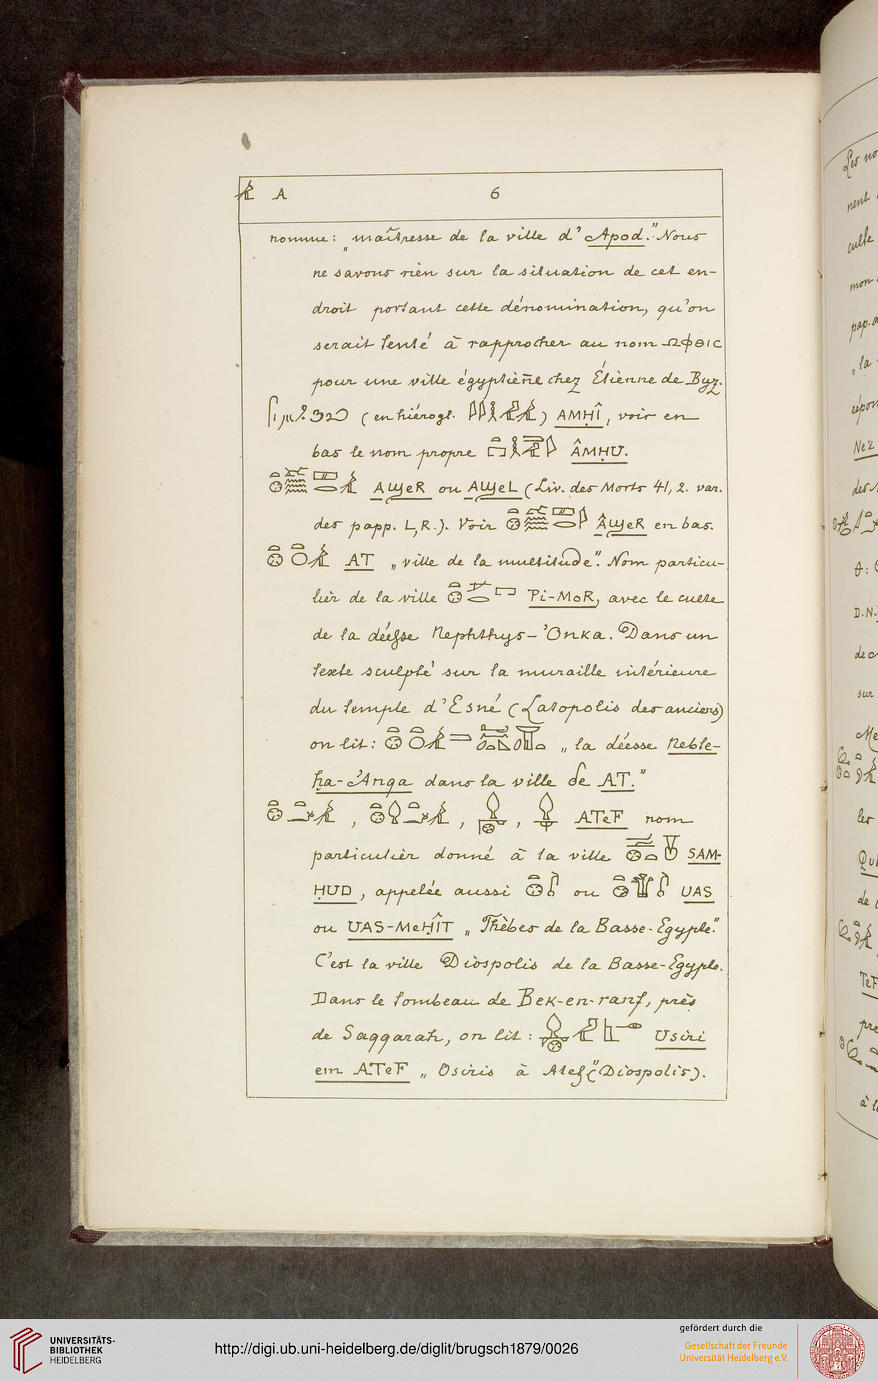 A 6
nomme: „maîtresse de la ville d'Apod." Nous
ne savons rien sur la situation de cet en-
droit portant cette dénomination, qu'on
serait tenté à rapprocher au nom ΩΦΘΙC
pour une ville égyptienne chez Étienne de Byz.
(en hiérogl. ) AMḤÎ, voir en
bas le nom propre ÂMḤU.
AϢeR ou AϢeL (Liv. des Morts 41, 2. var.
des papp. L, R.). Voir ÂϢeR en bas.
AT „ville de la multitude". Nom particu-
lier de la ville Pi-MoR, avec le culte
de la déesse Nephthys-'Onka. Dans un
texte sculpté sur la muraille intérieure
du temple d'Esné (Latopolis des anciens)
on lit: „la déesse Neble-
ḥa-'Anqa dans la ville de AT."
, , , ATeF nom
particulier donné à la ville SAM-
ḤUD, appelée aussi ou UAS
ou UAS-MeḤÎT „Thèbes de la Basse-Egypte."
C'est la ville Diospolis de la Basse-Egypte.
Dans le tombeau de Bek-en-ranf, près
de Saqqarah, on lit: Usiri
em ATeF „Osiris à Atef" (Diospolis).
UNIVERSITÄTS-
BIBLIOTHEK
HEIDELBERG
http://digi.ub.uni-heidelberg.de/diglit/brugsch1879/0026
gefördert durch die
Gesellschaft der Freunde
Universität Heidelberg e.V.